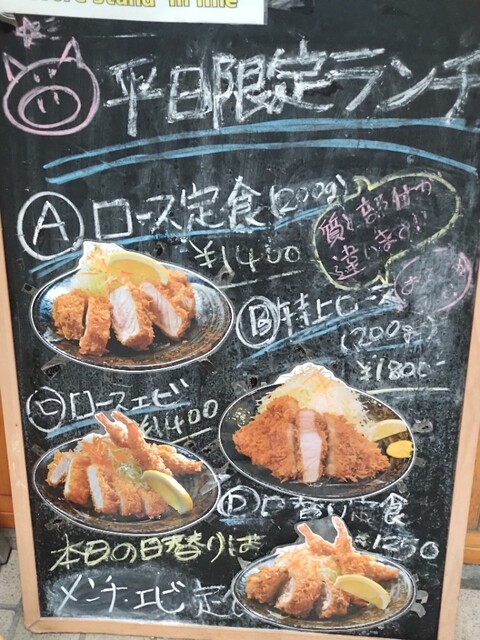 stand in line
平日限定ランチ
Ⓐ ロース定食(200g)
¥1400
質と切り付けが
違います!!
Ⓑ 特上ロース
(200g)
¥1800-
Ⓒ ロースエビ
¥1400
Ⓓ 日替り定食
¥1250
本日の日替りは
メンチエビ定